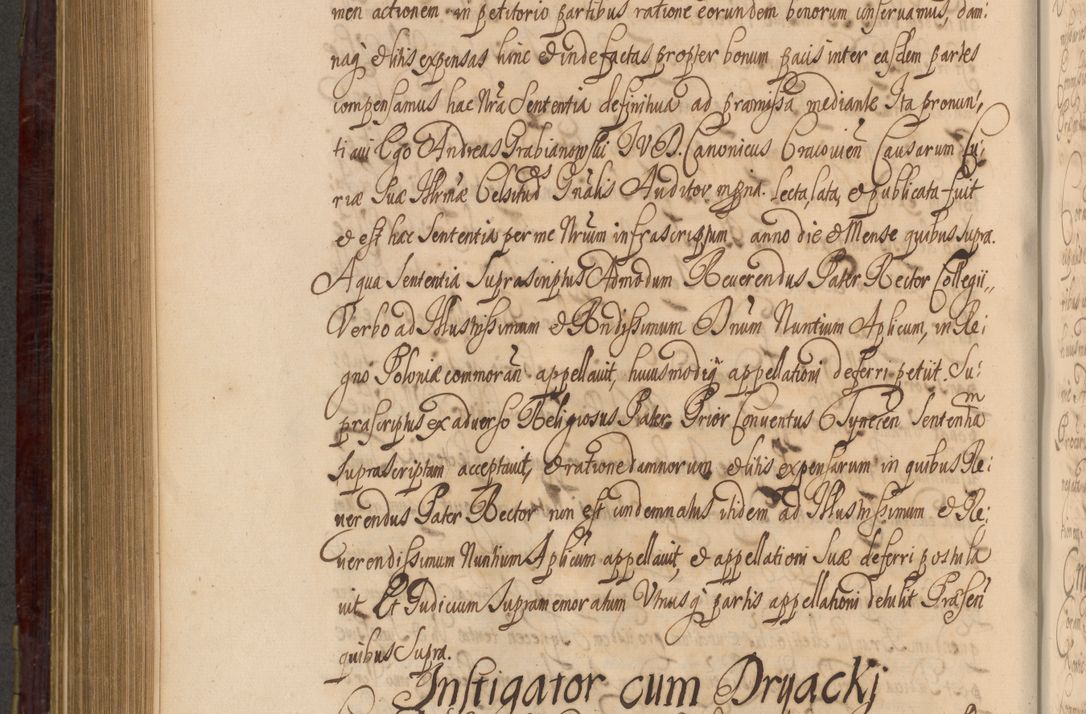 men actionem in petitorio partibus ratione eorundem bonorum conservamus, dam:
naq́ & litis expensas hinc & inde factas propter bonum pacis inter easdem partes
compensamus hac Nrã Sententia definitiva ad præmissa mediante Ita pronun:
tiavi Ego Andreas Grabianowski IVD. Canonicus Cracovień Causarum Cu:
riæ Suæ Illrmæ Celsituds Gnãlis Auditor mpria. Lecta, lata, & publicata fuit
& est hæc Sententia per me Nrium infrascriptum anno die & Mense quibus supra.
A qua Sententia Suprascriptus Admodum Reverendus Pater Rector Collegii,
Verbo ad Illustrissimum & Rndissimum Dnum Nuntium Aplicum, in Re:
gno Poloniæ commorań appellavit, huiusmodiq́ appellationi deferri petiit. Su:
prascriptus ex adverso Religiosus Pater Prior Conventus Tynecen Sententiam
Suprascriptam acceptavit, & ratione damnorum & litis expensarum in quibus Re:
verendus Pater Rector non est condemnatus itidem ad Illustrissimum & Re:
verendissimum Nuntium Aplicum appellavit, & appellationi Suæ deferri postula
vit Et Iudicium Supramemoratum Utriusq́ partis appellationi detulit Præsen
quibus Supra.
Instigator cum Dryackj